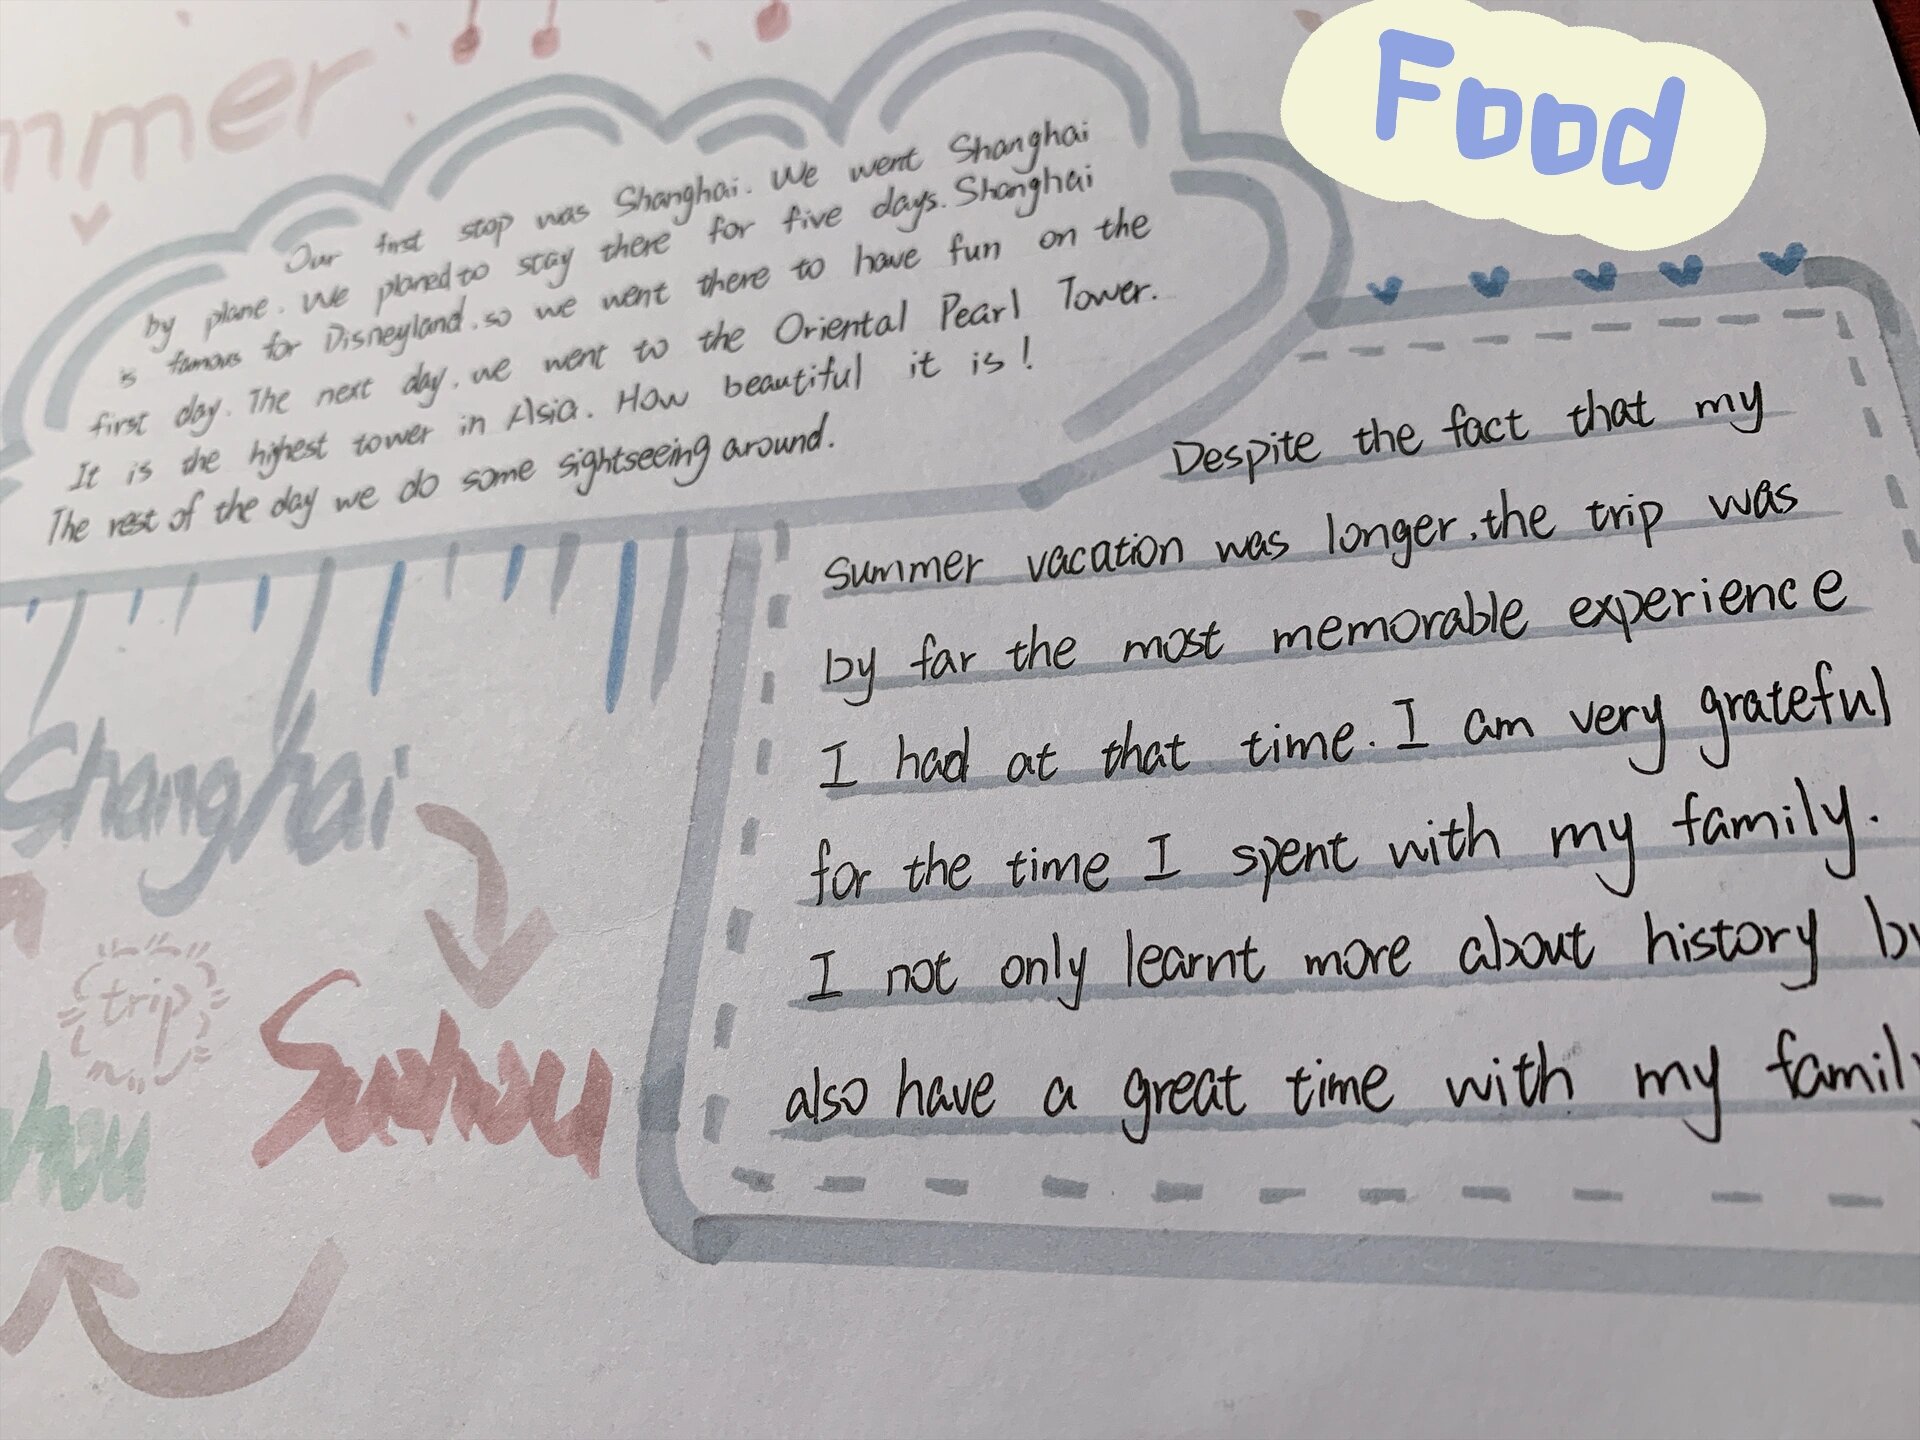 mmer
Food
Our first stop was Shanghai. We went Shanghai
by plane. We planed to stay there for five days. Shanghai
is famous for Disneyland. so we went there to have fun on the
first day. The next day. we went to the Oriental Pearl Tower.
It is the highest tower in Asia. How beautiful it is!
The rest of the day we do some sightseeing around.
Despite the fact that my
summer vacation was longer, the trip was
by far the most memorable experience
I had at that time. I am very grateful
for the time I spent with my family.
I not only learnt more about history by
also have a great time with my family
Shanghai
trip
Suzhou